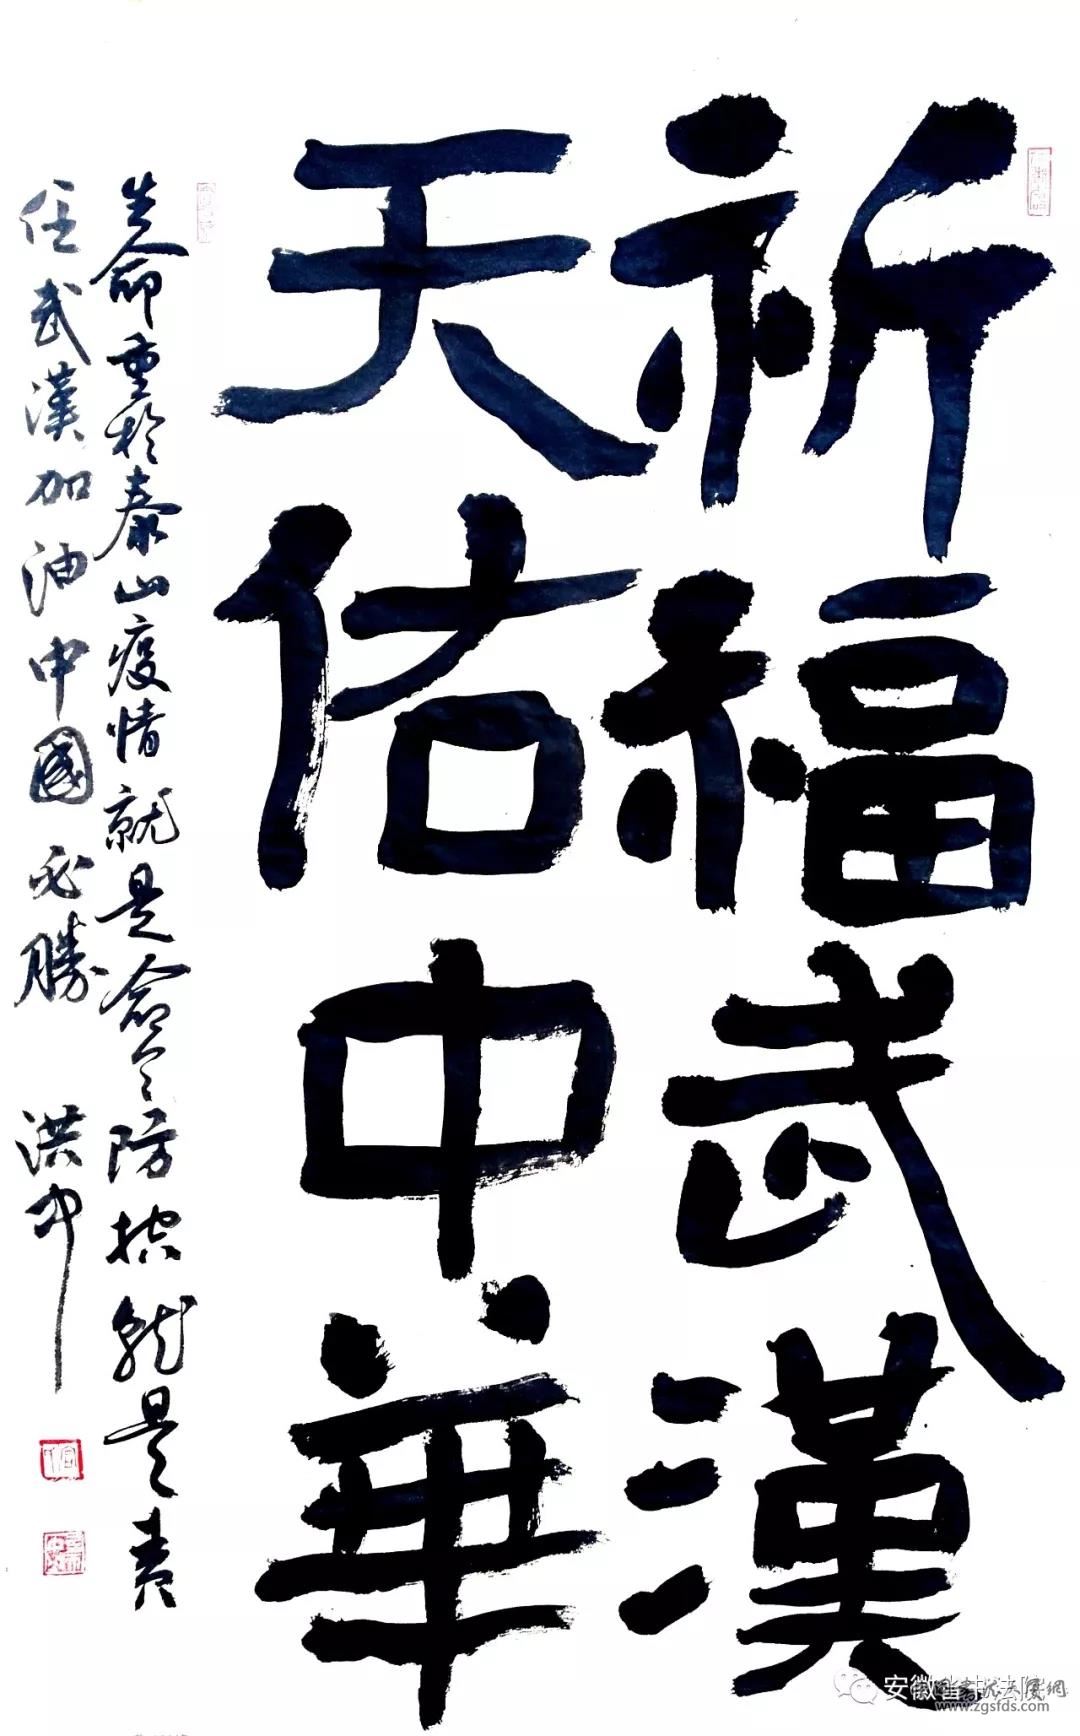 祈福武漢
天佑中華
生命重於泰山疫情就是命令防控就是責
任武漢加油中國必勝
洪中
安徽省书法院
www.zgsfds.com